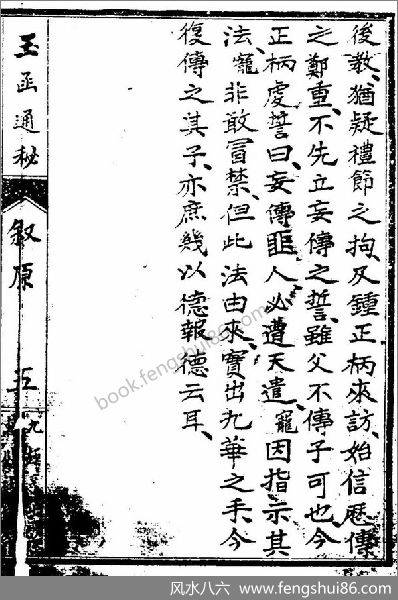 後教、猶疑禮節之拘、及鍾正柄來訪、始信歷傳
之鄭重、不先立妄傳之誓、雖父不傳子可也、今
正柄虔誓曰、妄傳匪人、必遭天遣、寵因指示其
法、寵非敢冒禁、但此法由來、實出九華之手、今
復傳之其子、亦庶幾以德報德云耳、
玉函通秘
敘原
五
book.fengshui86.com
风水八六 www.fengshui86.com